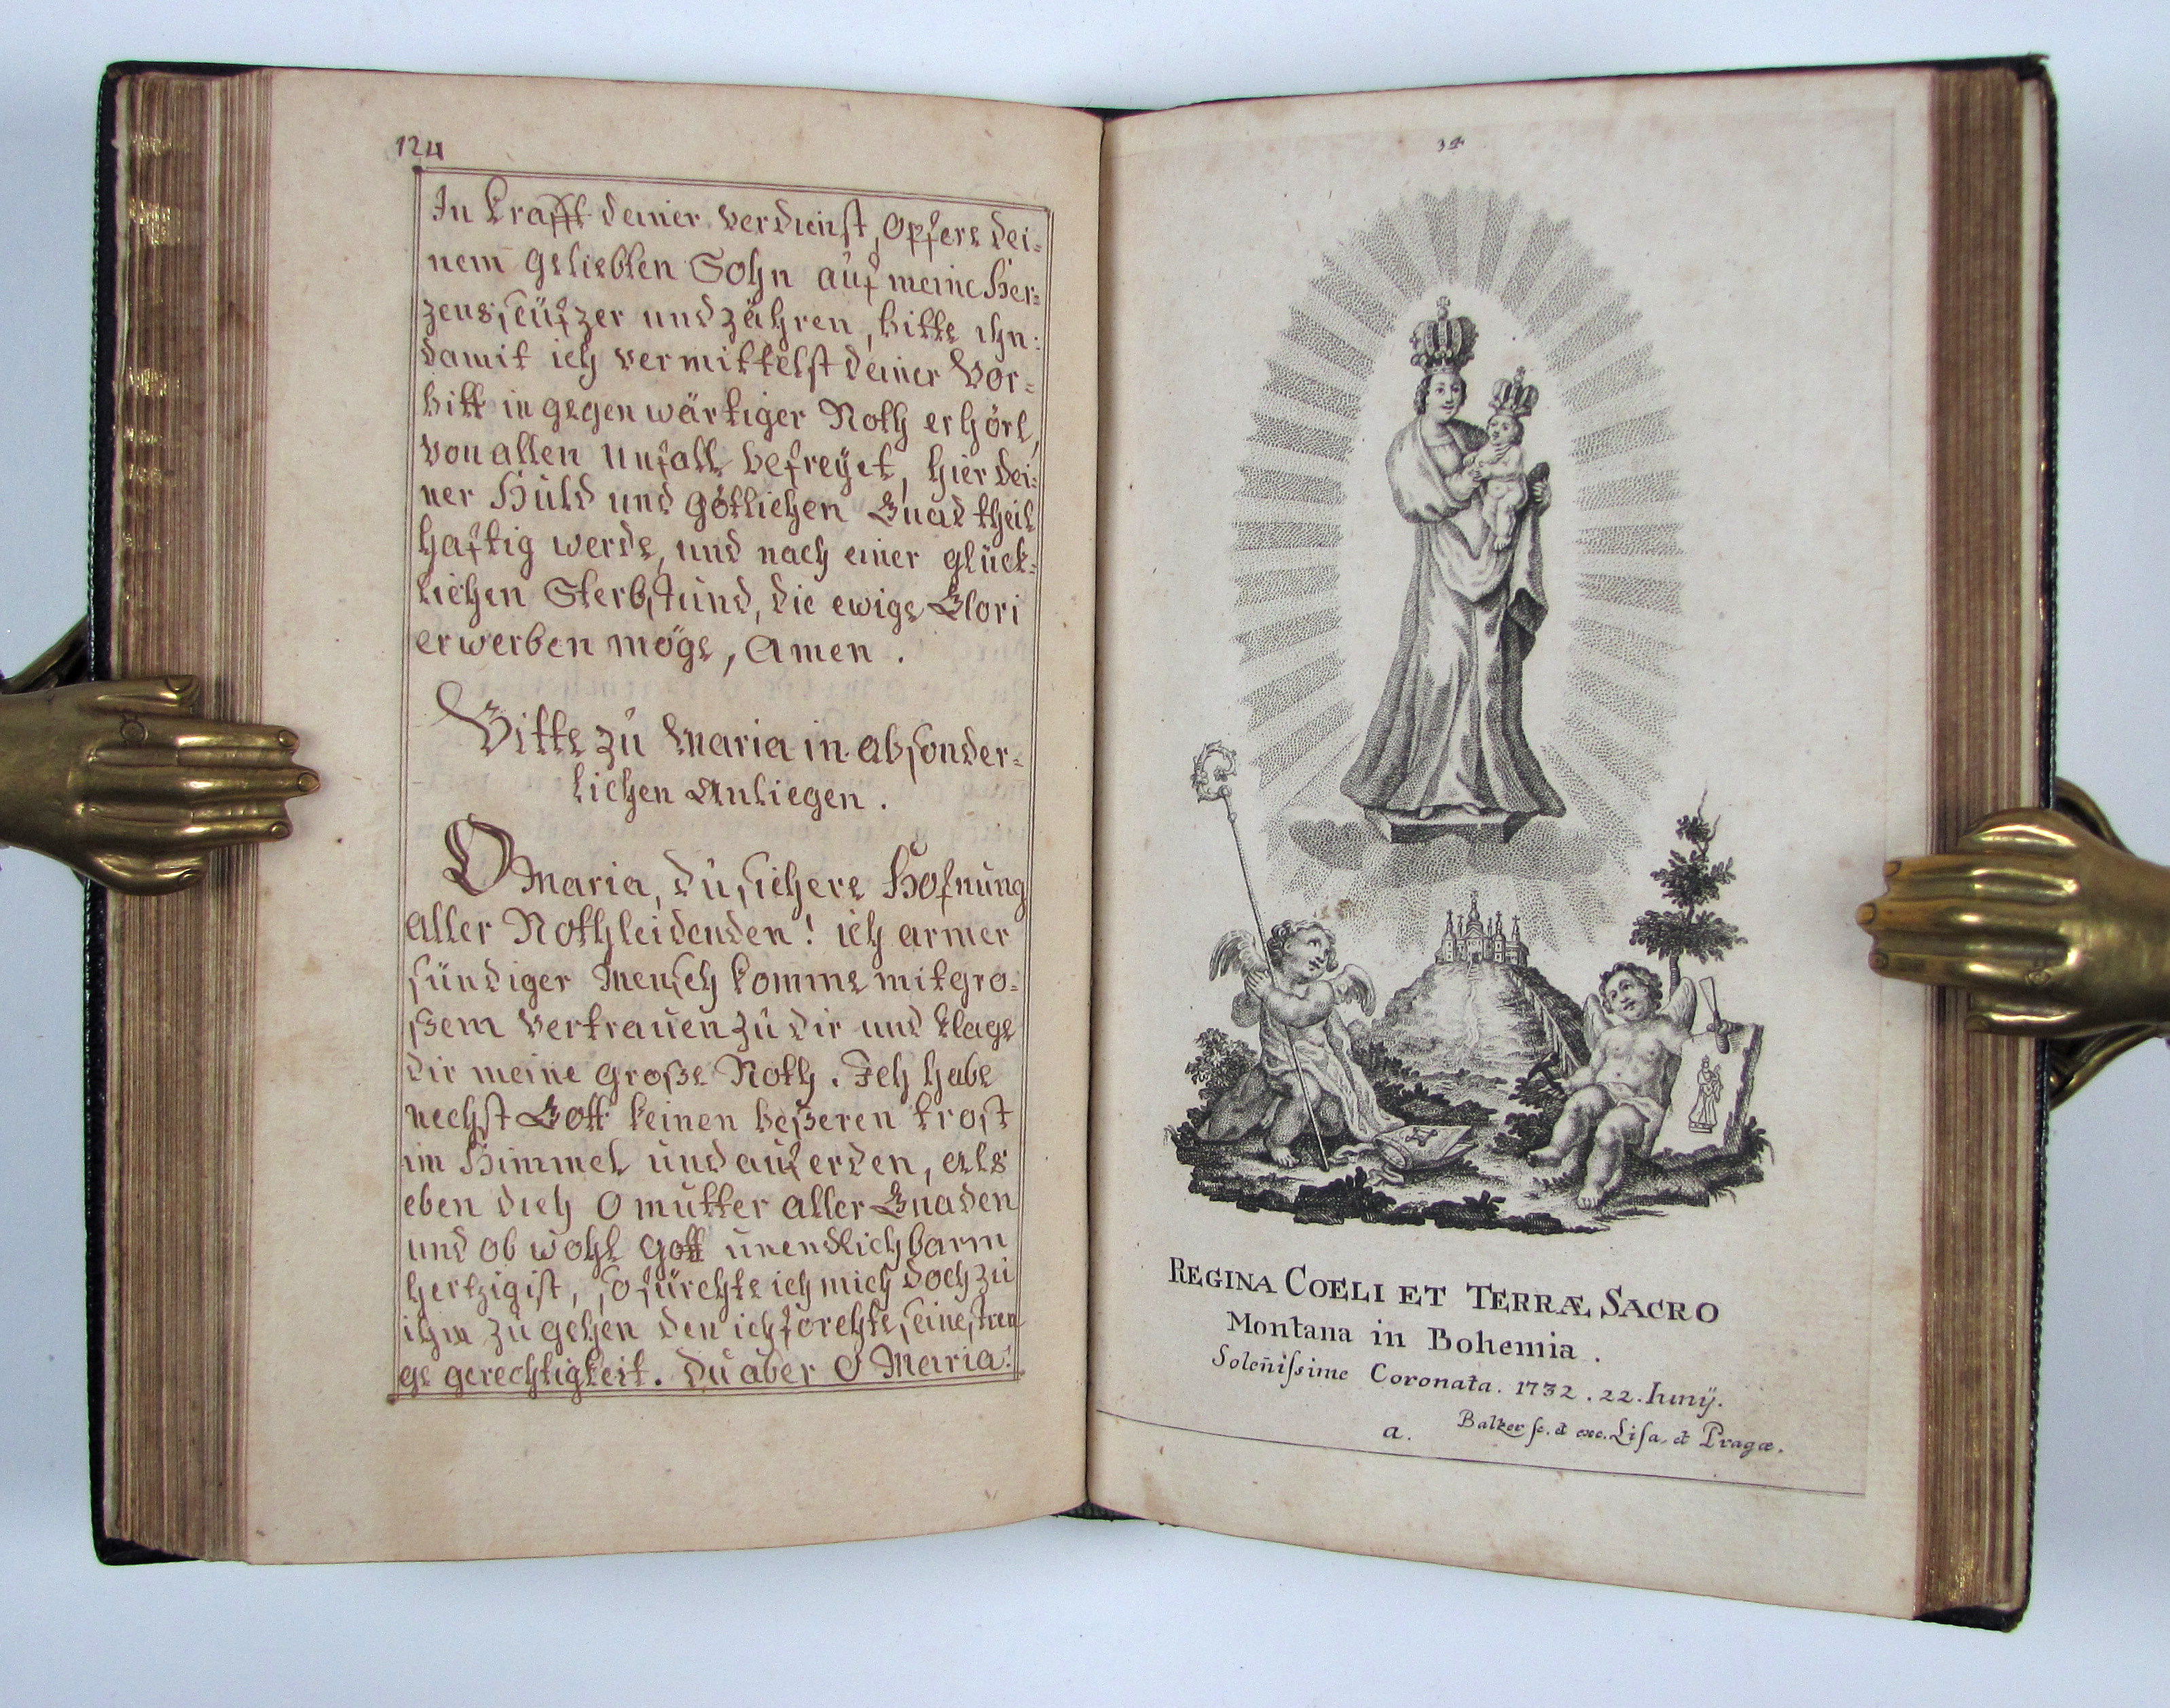 124
In krafft deiner verdienst, Opfere dei=
nem geliebten Sohn auf meine Her=
zens seüfzer und zähren, bitte ihn:
damit ich vermittelst deiner Vor=
bitt in gegenwärtiger Noth erhört,
von allen unfall befreyet, hier dei=
ner Huld und götlichen Gnad theil
haftig werde, und nach einer glück=
lichen Sterbstund, die ewige Glori
erwerben möge, Amen.
Bitte zu Maria in absonder=
lichen Anliegen.
O Maria, du sichere Hofnung
aller Nothleidenden! ich armer
sündiger Mensch komme mit gro=
ßem vertrauen zu dir und klage
dir meine große Noth. Ich habe
nechst Gott keinen beßeren trost
im Himmel und auf erden, als
eben dich O mutter aller Gnaden
und ob wohl gott unendlich barm
hertzig ist, so fürchte ich mich doch zu
ihm zu gehen den ich förchte seine stren
ge gerechtigkeit. du aber O Maria!
34
REGINA COELI ET TERRÆ SACRO
Montana in Bohemia.
Soleñissime Coronata. 1732. 22. Iunij.
a. Balzer sc. et exc. Lisa, et Pragæ.